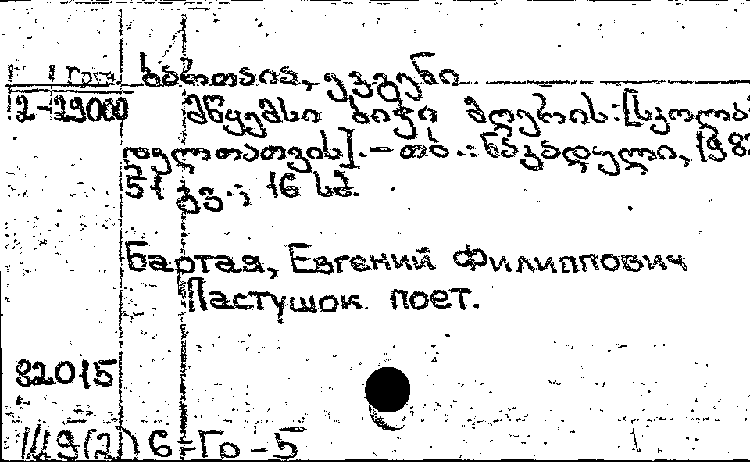 ბართაია, ევგენი
2-29000 მწყემსი ბიჭი მღერის: [სკოლა
დელთათვის]. — თბ.: ნაკადული, 198
51 გვ.; 16 სმ.
Бартая, Евгений Филиппович
Пастушок поет.
82015
9(2) 6 Го - 5